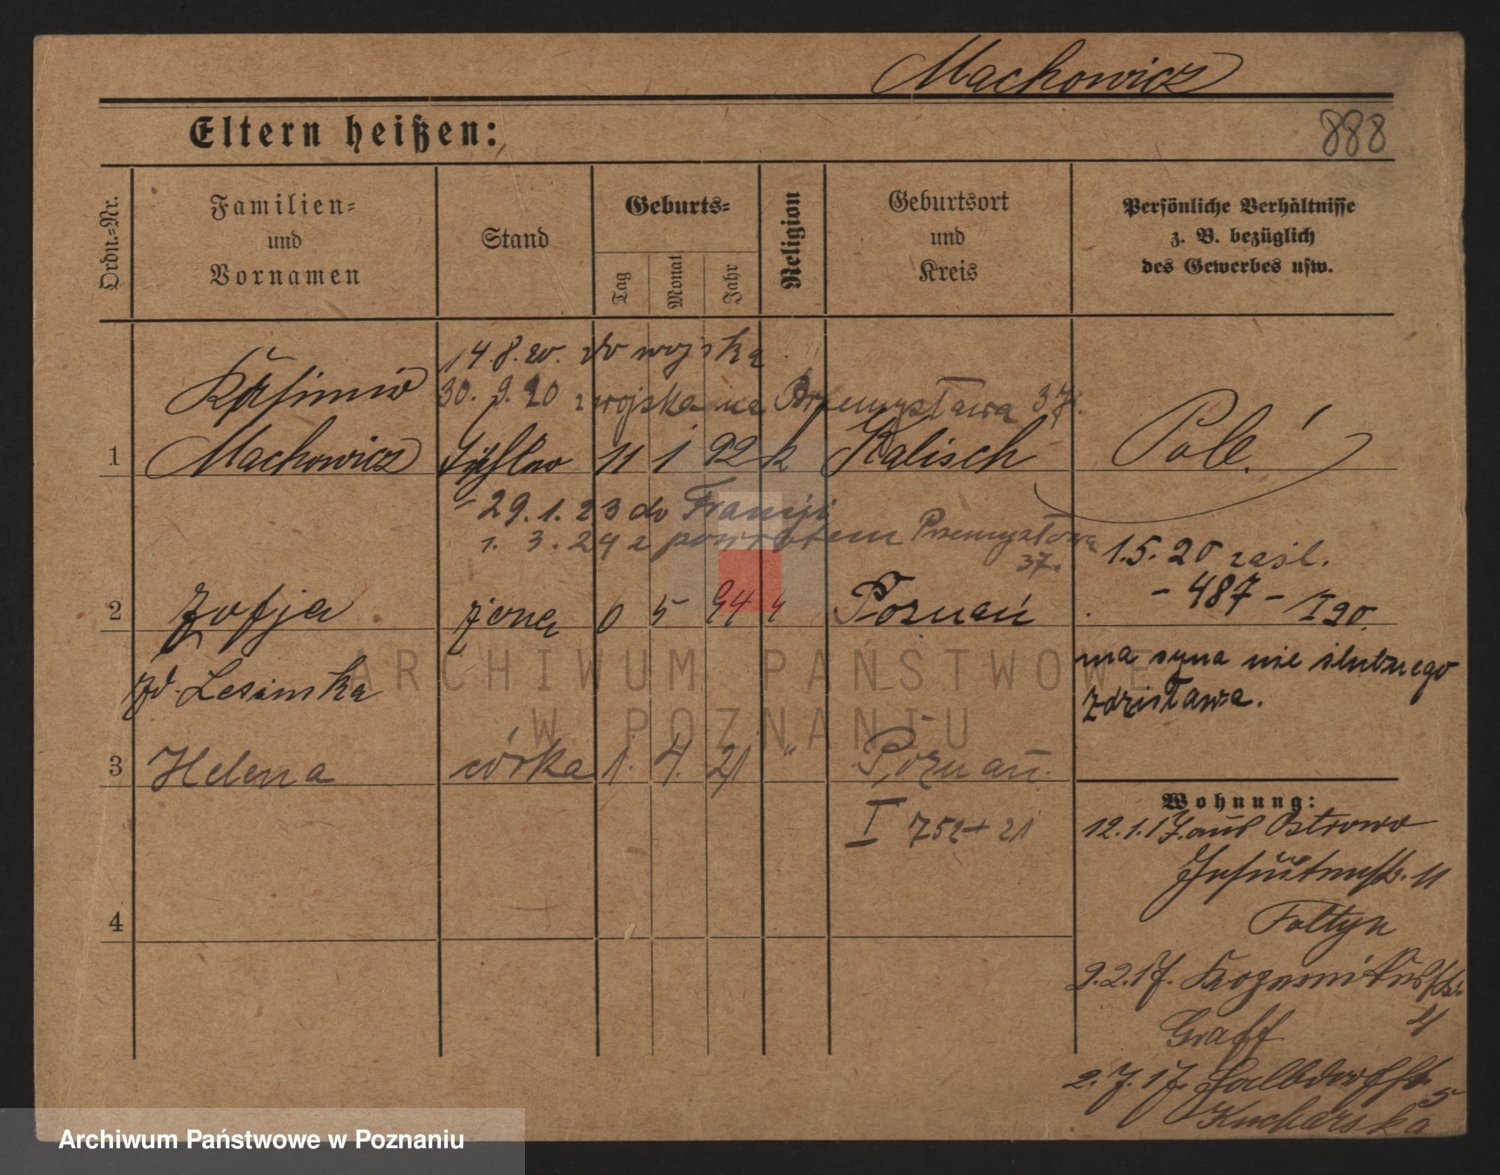 Machowicz
Eltern heißen:
888
Ordn.-Nr.
Familien-
und
Vornamen
Stand
Geburts-
Tag
Monat
Jahr
Religion
Geburtsort
und
Kreis
Persönliche Verhältnisse
z. B. bezüglich
des Gewerbes usw.
14.8.20. do wojska
30. 9. 20 z wojska na Przemysława 37.
Kasimir
1 Machowicz Tischler 11 1 92 k Kalisch Pole!
29.1.23 do Francji
1. 3. 24 z powrotem Przemysłowa
37.
1.5.20 zaśl.
- 487 - I 20.
2 Zofja żona 6 5 94 k Poznań
zd. Lesinska
ma syna nie ślubnego
Zdzisława.
3 Helena córka 1. 4. 21 " Poznań.
I 752 + 21
4
Wohnung:
12.1.17. aus Ostrowo
11
Foltyn
9.2.17.
4
Graff
2.7.17.
5
Kucharska
ARCHIWUM PAŃSTWOWE
W POZNANIU
Archiwum Państwowe w Poznaniu